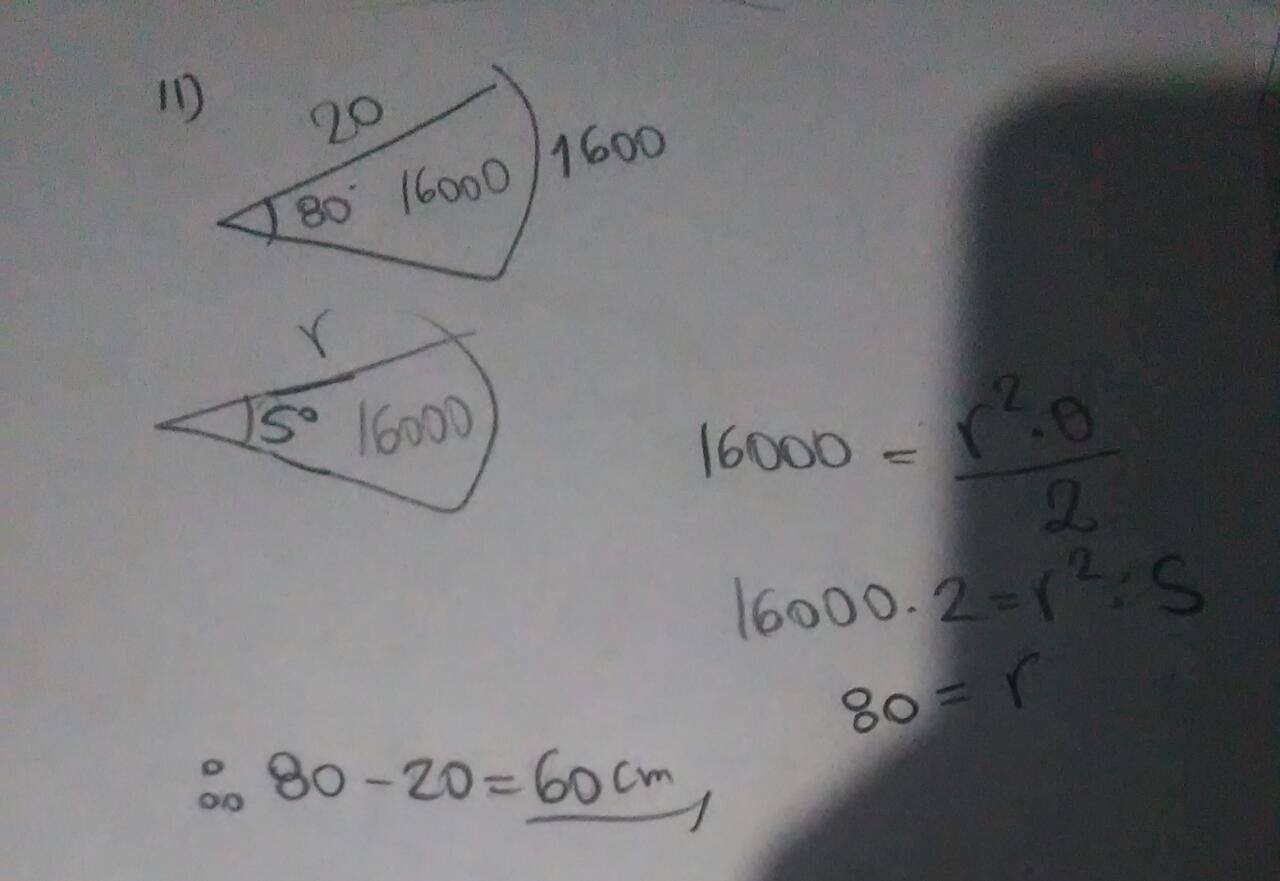 11)
20
80° 16000 1600
r
5° 16000
16000 = r². θ / 2
16000. 2 = r². 5
80 = r
∴ 80 - 20 = 60 cm